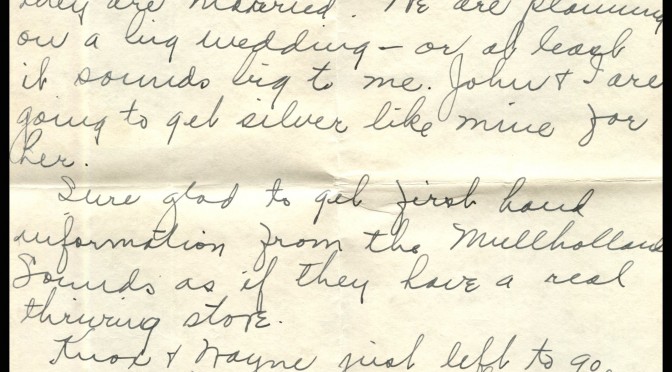 they are married. We are planning
on a big wedding - or at least
it sounds big to me. John & I are
going to get silver like mine for
her.
Sure glad to get first hand
information from the Mullholland
Sounds as if they have a real
thriving store.
Knox & Wayne just left to go